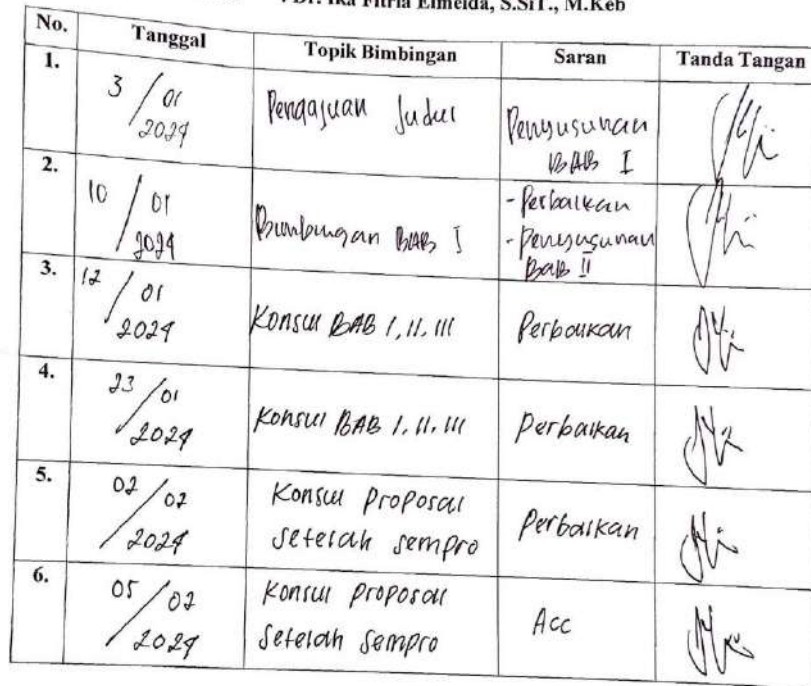 : Dr. Ika Fitria Elmeida, S.SiT., M.Keb
No. Tanggal Topik Bimbingan Saran Tanda Tangan
1. 3/01 2024 Pengajuan Judul Penyusunan BAB I
2. 10/01 2024 Bimbingan BAB I - Perbaikan - Penyusunan BAB II
3. 12/01 2024 Konsul BAB I, II, III Perbaikan
4. 23/01 2024 Konsul BAB I, II, III Perbaikan
5. 02/02 2024 Konsul proposal setelah sempro Perbaikan
6. 05/02 2024 Konsul proposal setelah sempro Acc